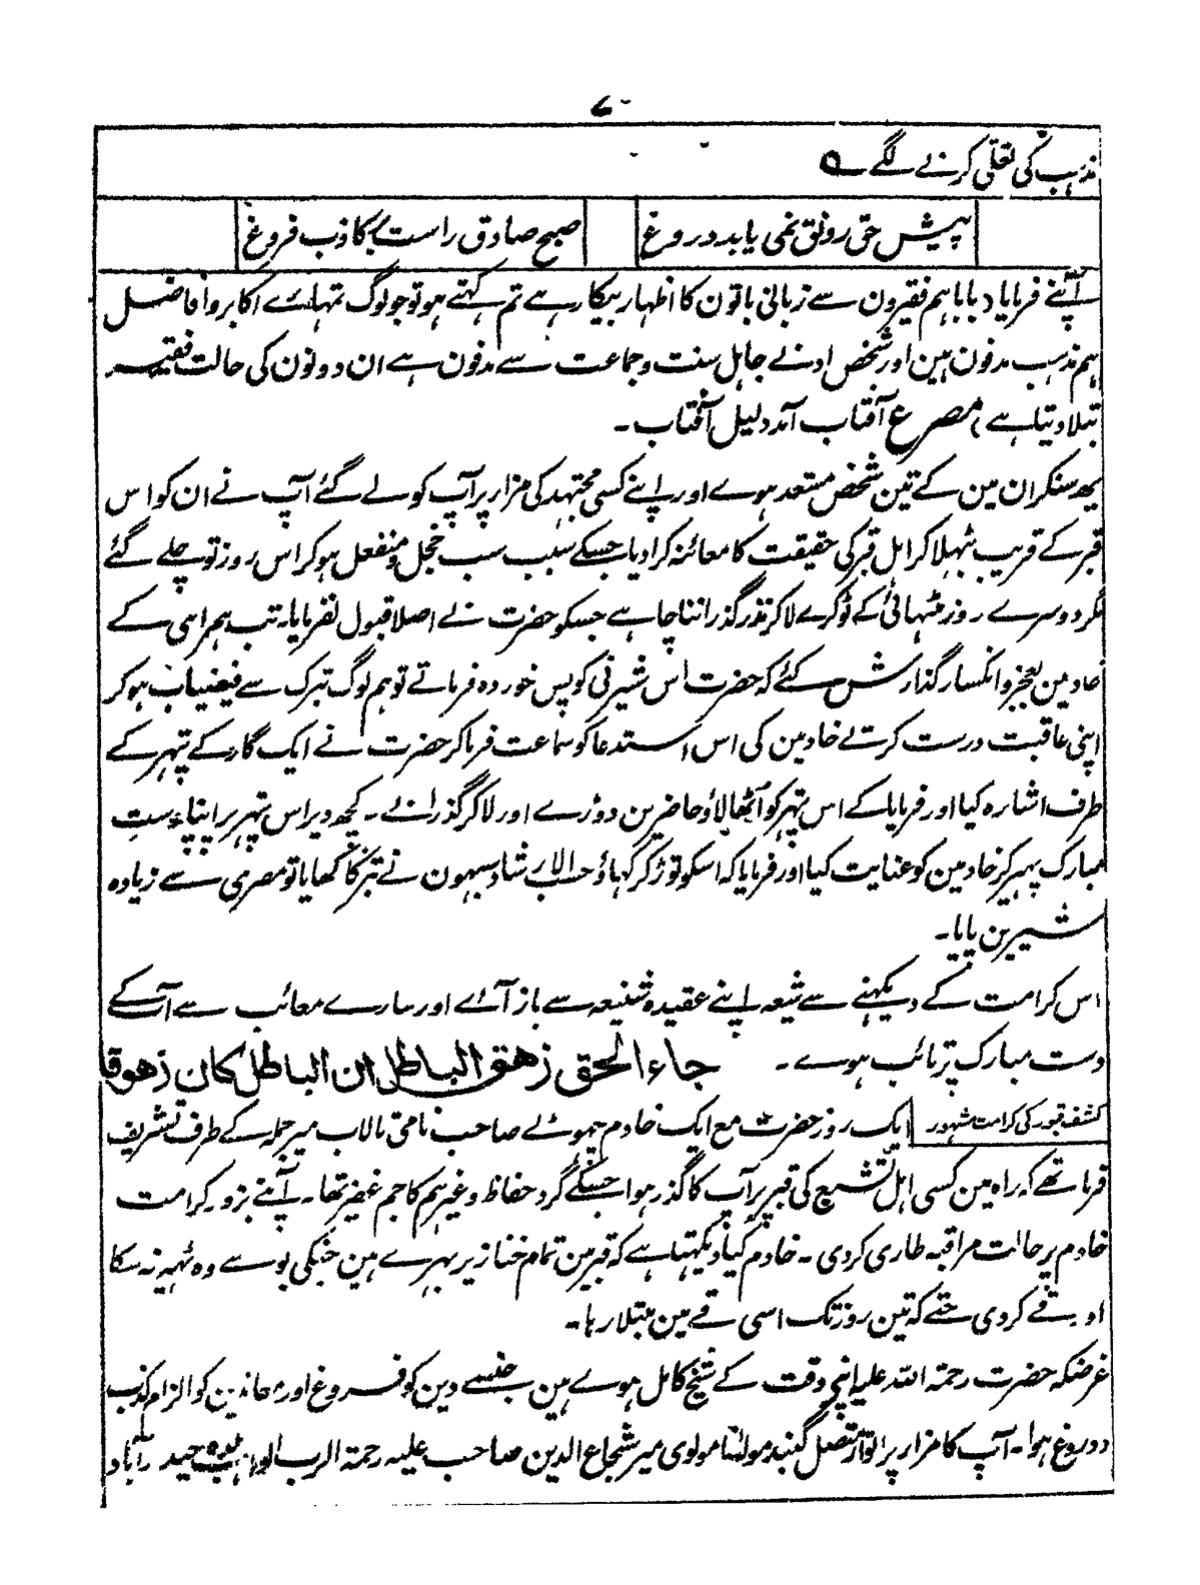 ۷
مذہب کی تعلّی کرنے لگے ؎
پیش حق رونق نمی یابد دروغ
صبح صادق راست کاذب فروغ
آپنے فرمایا دبابا ہم فقیرون سے زبانی باتون کا اظہار بیکار ہے تم کہتے ہو تو جو لوگ تمہارے اکابر وافاضل
ہم مذہب مدفون ہین اور شخص ادنے جاہل سنت وجماعت سے مدفون ہے ان دونون کی حالت فقیر
تبلا دیتا ہے ، مصرع آفتاب آمد دلیل آفتاب -
یہہ سنکر ان مین کے تین شخص مستعد ہوے اور اپنے کسی مجتہد کی مزار پر آپ کو لے گئے آپ نے ان کو اس
قبر کے قریب بٹہلا کر اہل قبر کی حقیقت کا معائنہ کرا دیا جسکے سبب سب خجل و منفعل ہو کر اس روز تو چلے گئے
مگر دوسرے روز مٹہائی کے ٹوکرے لا کر نذر گذراننا چاہے جسکو حضرت نے اصلا قبول نفرمایا۔ تب ہمراہی کے
خادمین بعجز و انکسار گذارش کئے کہ حضرت اس شیرنی کو پس خوردہ فرماتے تو ہم لوگ تبرک سے فیضیاب ہو کر
اپنی عاقبت درست کرتے خادمین کی اس استدعا کو سماعت فرما کر حضرت نے ایک گارے کے پتہر کے
طرف اشارہ کیا اور فرمایا کے اس پتہر کو اٹھا لاؤ حاضرین دوڑے اور لا کر گذرانے - کچھ دیر اس پتہر پر اپنا دست
مبارک پہیر کر خادمین کو عنایت کیا اور فرمایا کہ اسکو توڑ کر کہاؤ حسب الارشاد سبہون نے تبرکاً کھایا تو مصری سے زیادہ
شیرین پایا -
اس کرامت کے دیکہنے سے شیعہ اپنے عقیدہ شنیعہ سے باز آئے اور سارے معائب سے آپ کے
دست مبارک پر تائب ہوے - جاء الحق زهق الباطل ان الباطل كان زهوقا
کشف قبور کی کرامت مشہور
ایک روز حضرت مع ایک خادم چہوٹے صاحب نامی تالاب میر جملہ کے طرف تشریف
فرماتھے کہ راہ مین کسی اہل تشیع کی قبر پر آپ کا گذر ہوا جسکے گرد حفاظ وغیرہم کا جم غفیر تھا - آپنے بزور کرامت
خادم پر حالت مراقبہ طاری کردی - خادم کیا دیکہتا ہے کہ قبر مین تمام خنازیر بہرے ہین جنکی بو سے وہ ٹہیر نہ سکا
اور قے کردی حتے کہ تین روز تک اسی قے مین مبتلا رہا -
غرضکہ حضرت رحمۃ اللہ علیہ اپنی وقت کے شیخ کامل ہوے ہین جنسے دین کو فروغ اور معاندین کو الزام کذب
و دروغ ہوا - آپ کا مزار پر انوار متصل گنبد مولٰنا مولوی میر شجاع الدین صاحب علیہ رحمۃ الرب الواہب بلدہ حیدرآباد